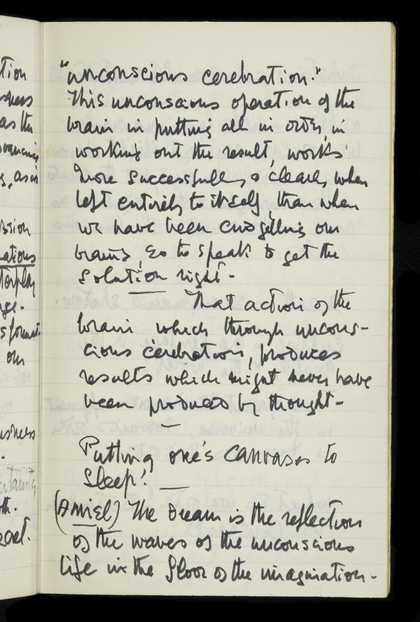 tion
as the
"unconscious cerebration."
This unconscious operation of the
brain in putting all in order, in
working out the result, works
more successfully & clearly when
left entirely to itself, than when
we have been cudgelling our
brains, so to speak to get the
solution right -
That action of the
brain which through uncons-
cious cerebration, produces
results which might never have
been produced by thought -
Putting one's canvases to
sleep! -
(Amiel) The Dream is the reflection
of the waves of the unconscious
life in the floor of the imagination -